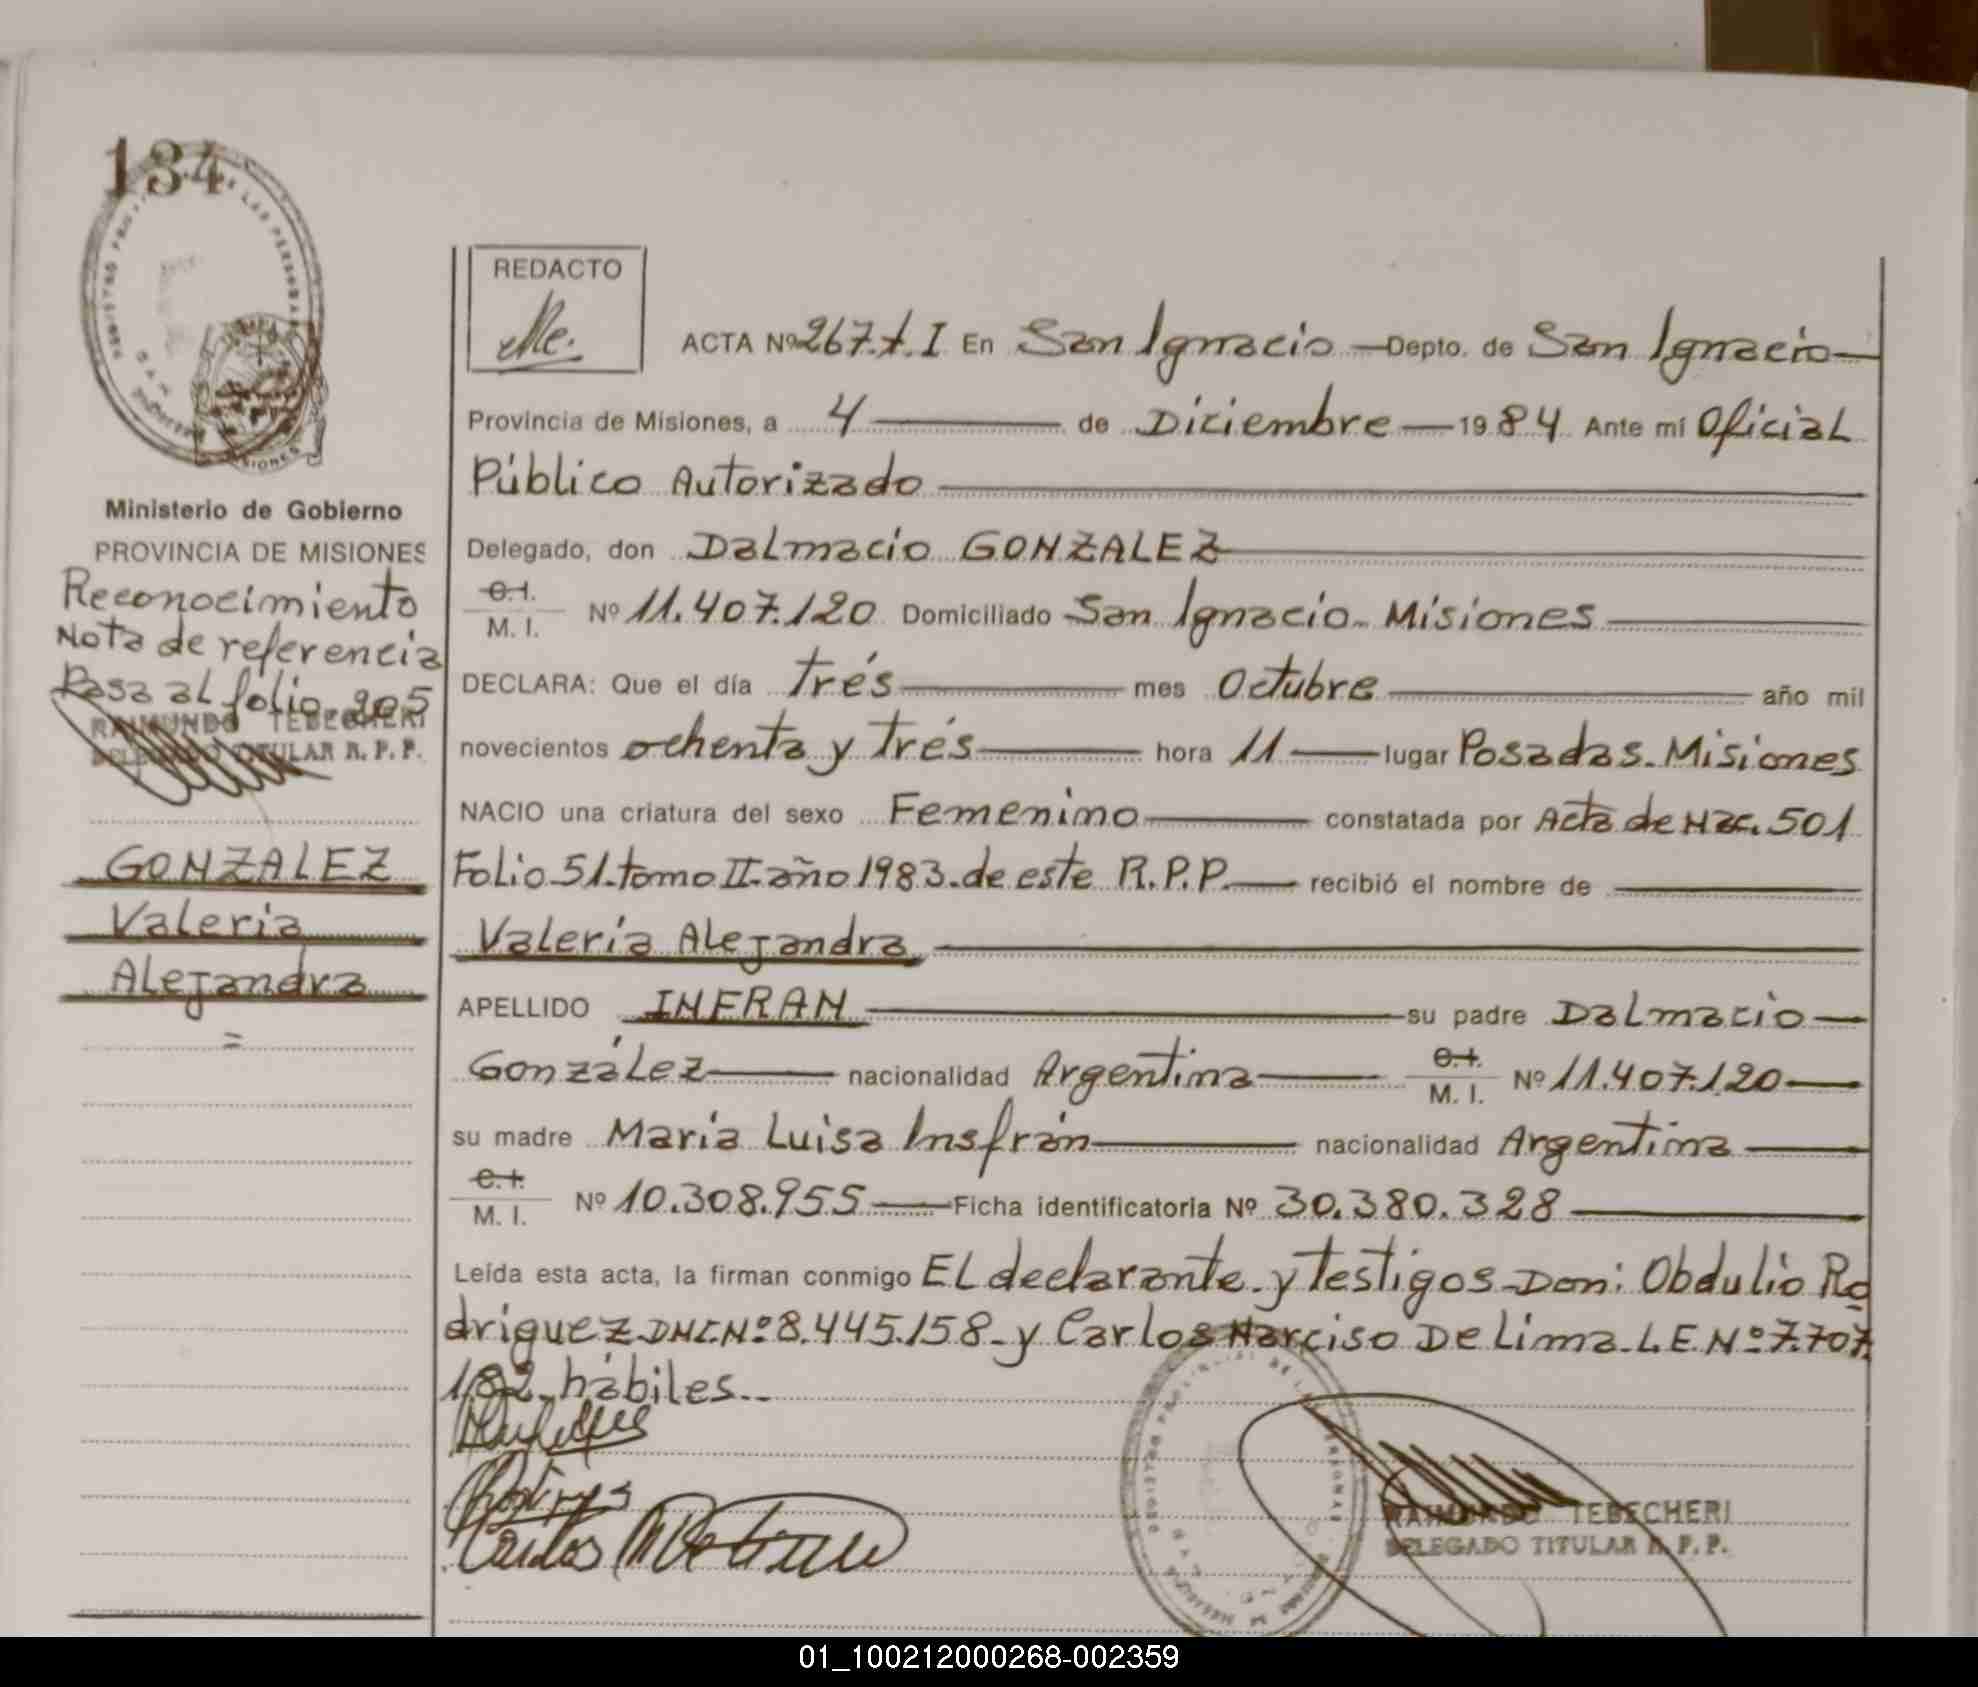 134
REDACTO
ACTA Nº 267. t. I En San Ignacio Depto. de San Ignacio
Provincia de Misiones, a 4 de Diciembre 1984 Ante mí Oficial
Público Autorizado
Ministerio de Gobierno
PROVINCIA DE MISIONES
Reconocimiento
Nota de referencia
Pasa al folio. 205
RAIMUNDO TEBECHERI
DELEGADO TITULAR R. P. P.
GONZALEZ
Valeria
Alejandra
=
Delegado, don Dalmacio GONZALEZ
C. I.
M. I. Nº 11.407.120 Domiciliado San Ignacio. Misiones
DECLARA: Que el día trés mes Octubre año mil
novecientos ochenta y trés hora 11 lugar Posadas. Misiones
NACIO una criatura del sexo Femenino constatada por Acta de Nac. 501
Folio 51. tomo II. año 1983. de este R.P.P. recibió el nombre de
Valeria Alejandra
APELLIDO INFRAN su padre Dalmacio
González nacionalidad Argentina C. I. M. I. Nº 11.407.120
su madre María Luisa Insfrán nacionalidad Argentina
C. I.
M. I. Nº 10.308.955 Ficha identificatoria Nº 30.380.328
Leída esta acta, la firman conmigo El declarante. y testigos Don: Obdulio Ro
driguez DNI. Nº 8.445.158. y Carlos Narciso De Lima. L.E. Nº 7.707.
182. hábiles.
RAIMUNDO TEBECHERI
DELEGADO TITULAR R. P. P.
01_100212000268-002359